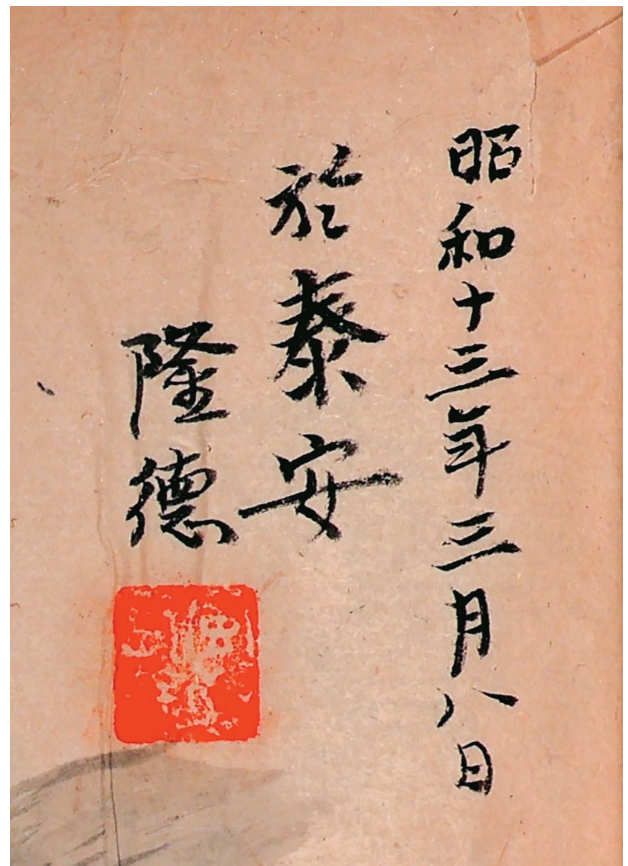 昭和十三年三月八日
於泰安
隆德